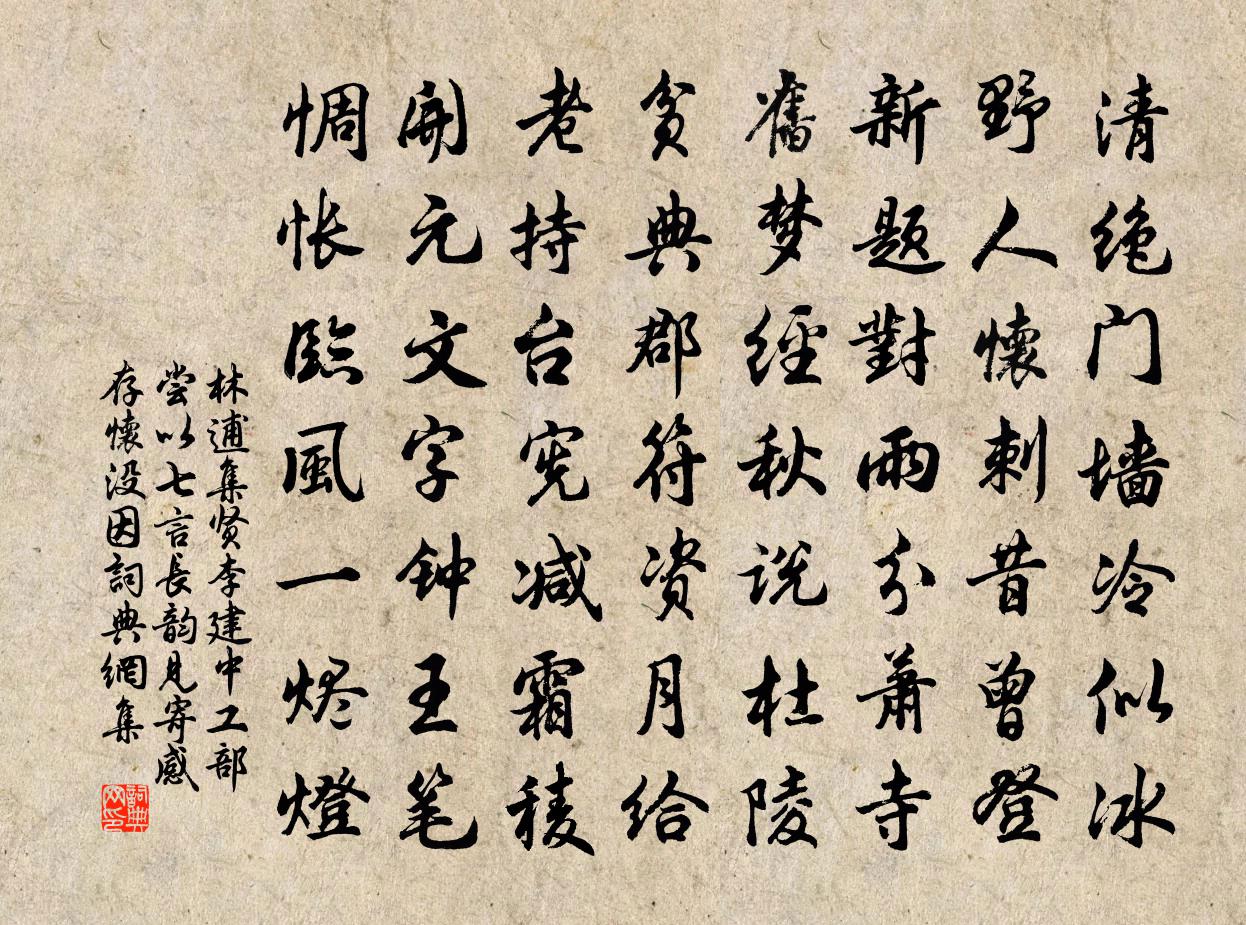 清绝门墙冷似冰
野人懷刺昔曾登
新题對雨分萧寺
舊梦經秋说杜陵
贫典郡符资月给
老持台宪减霜稜
開元文字钟王笔
惆怅臨風一烬燈
林逋集贤李建中工部
尝以七言長韵見寄感
存懷没因詞典網集
詞典
网印